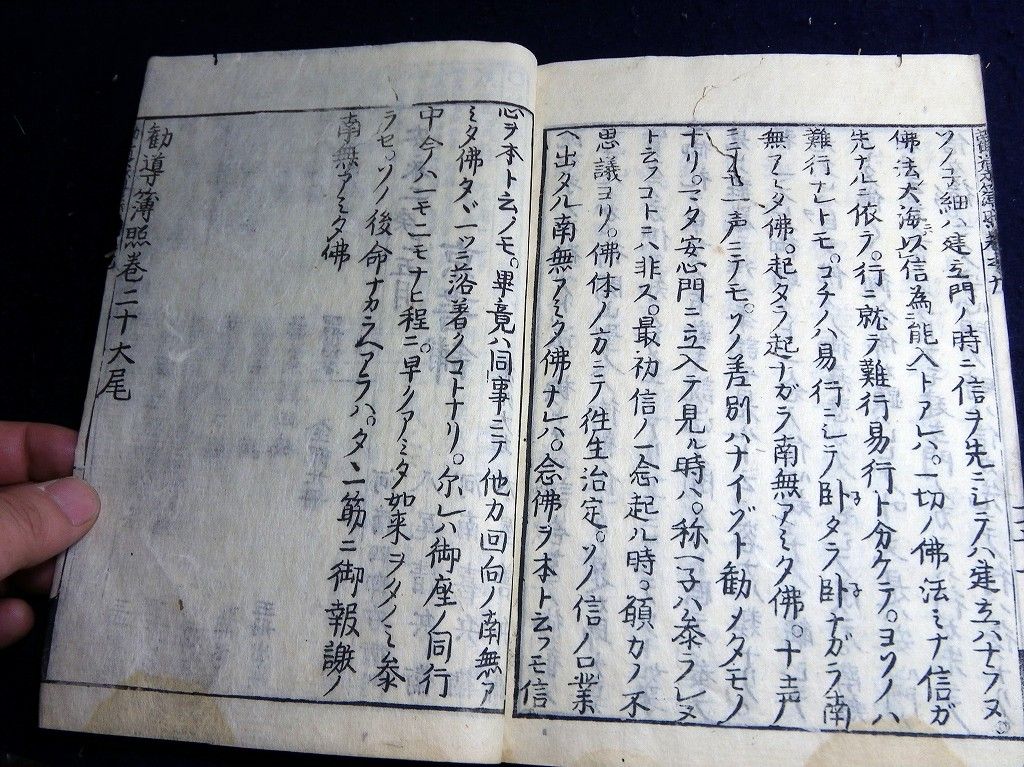 ソノ子細ハ建立門ノ時ニ信ヲ先ニシテハ建立ハナラヌ
佛法大海以信為能入トアレハ。一切ノ佛法ミナ信ガ
先ナルニ依テ。行ニ就テ難行易行ト分ケテ。ヨソノハ
難行ナレトモ。コチノハ易行ニシテ臥タラ臥ナガラ南
無アミタ佛。起タラ起ナガラ南無アミタ佛。十声ノ
一声ニテモ。ソノ差別ハナイゾト勧メタモノ
ナリ。マタ安心門ニ立入テ見ル時ハ。称一子ハ叅ラレヌ
ト云フコトニハ非ス。最初信ノ一念起ル時。願力ノ不
思議ヨリ。佛体ノ方ニテ徃生治定。ソノ信ノ口業
ヘ出タル南無アミタ佛ナレハ。念佛ヲ本ト云フモ信
心ヲ本ト云ノモ。畢竟ハ同事ニテ他力回向ノ南無ア
ミタ佛タヾ一ツニ落着クコトナリ。尓レハ御座ノ同行
中今ハ一モ二モナヒ程ニ。早クアミタ如来ヲタノミ叅
ラセ。ソノ後命ナカラヘアラハ。タヽ一筋ニ御報謝ノ
南無アミタ佛
勧導簿照巻二十大尾